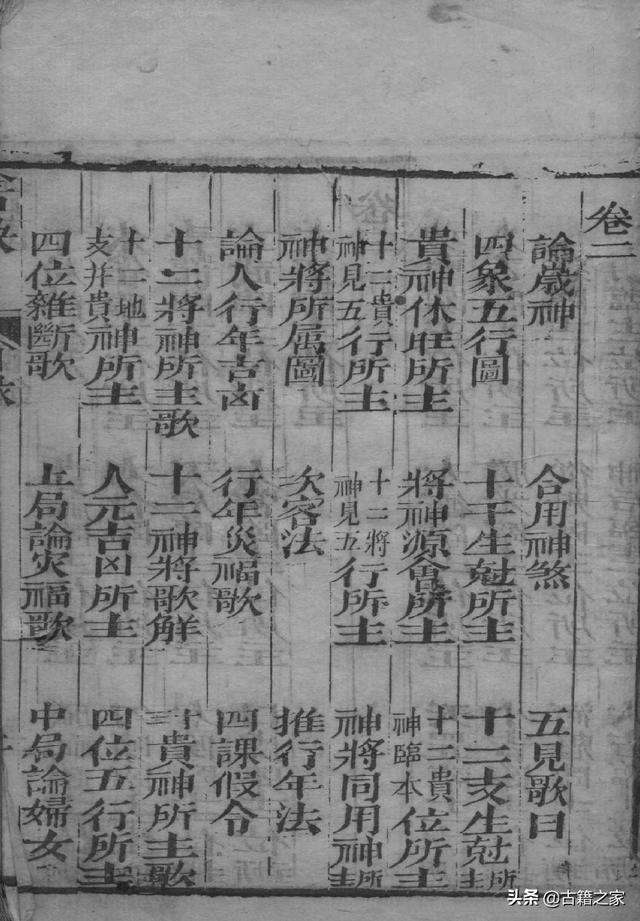 卷二
論歲神　合用神煞　五見歌曰
四象五行圖　十干生尅所主　十二支生尅所
貴神休旺所主　將神源會所主　十二貴神臨本位所主
十二貴神見五行所主　十二將神見五行所主　神將同用神所
神將所屬圖　次客法　推行年法
論人行年吉凶　行年災福歌　四課假令
十二將神所主歌　十二神將歌解　十二貴神所主歌
十二地支并貴神所主　人元吉凶所主　四位五行所主
四位雜斷歌　上局論災福歌　中局論婦女
头条 @古籍之家